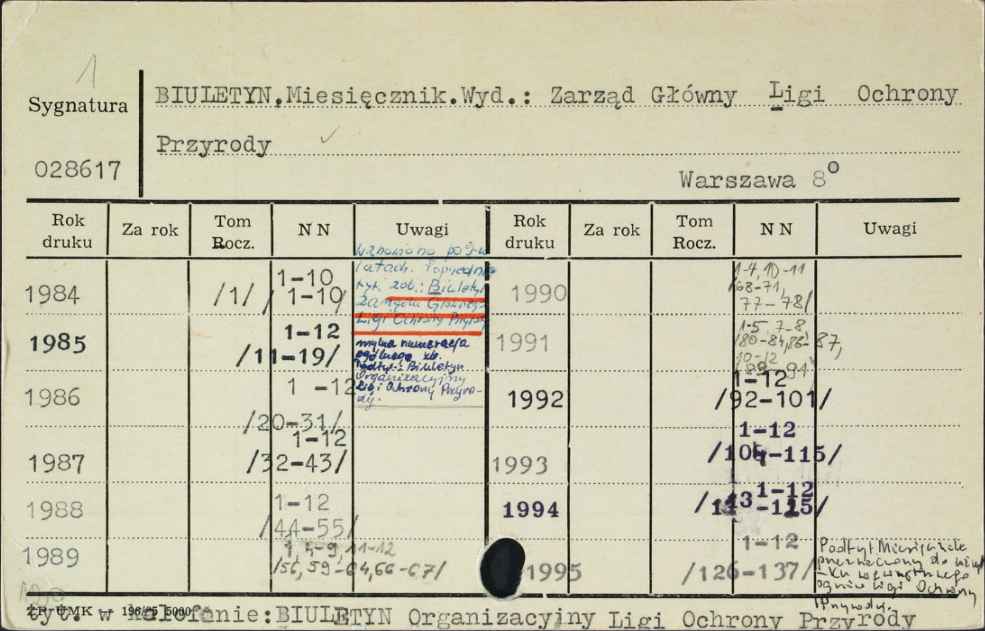 1
Sygnatura
BIULETYN.Miesięcznik.Wyd.: Zarząd Główny Ligi Ochrony
Przyrody
028617
Warszawa 8°
Rok druku Za rok Tom Rocz. N N Uwagi Rok druku Za rok Tom Rocz. N N Uwagi
1984 /1/ 1-10
/1-10/
Wznowiono po
latach. Poprzednio
tyt. zob.: Biuletyn
Zarządu Głównego
Ligi Ochrony Przyrody
1985 1-12
/11-19/
mylna numeracja
ogólnego zb.
Podtyt.: Biuletyn
Organizacyjny
Ligi Ochrony Przyro-
dy.
1986 1-12
/20-31/
1987 1-12
/32-43/
1988 1-12
/44-55/
1989 1, 4-9, 11-12
/56, 59-64, 66-67/
1990 1-4, 10-11
/68-71,
77-78/
1991 1-5, 7-8,
/80-84, 86-87,
10-12
89-91
1992 1-12
/92-101/
1993 1-12
/104-115/
1994 1-12
1995 1-12
/126-137/
Podtyt Miesięcznik
przeznaczony do
wewnętrznego
Ligi Ochrony
Przyrody.
ZP UMK — 196/75 5000
tyt. w kolofenie:BIULETYN Organizacyjny Ligi Ochrony Przyrody